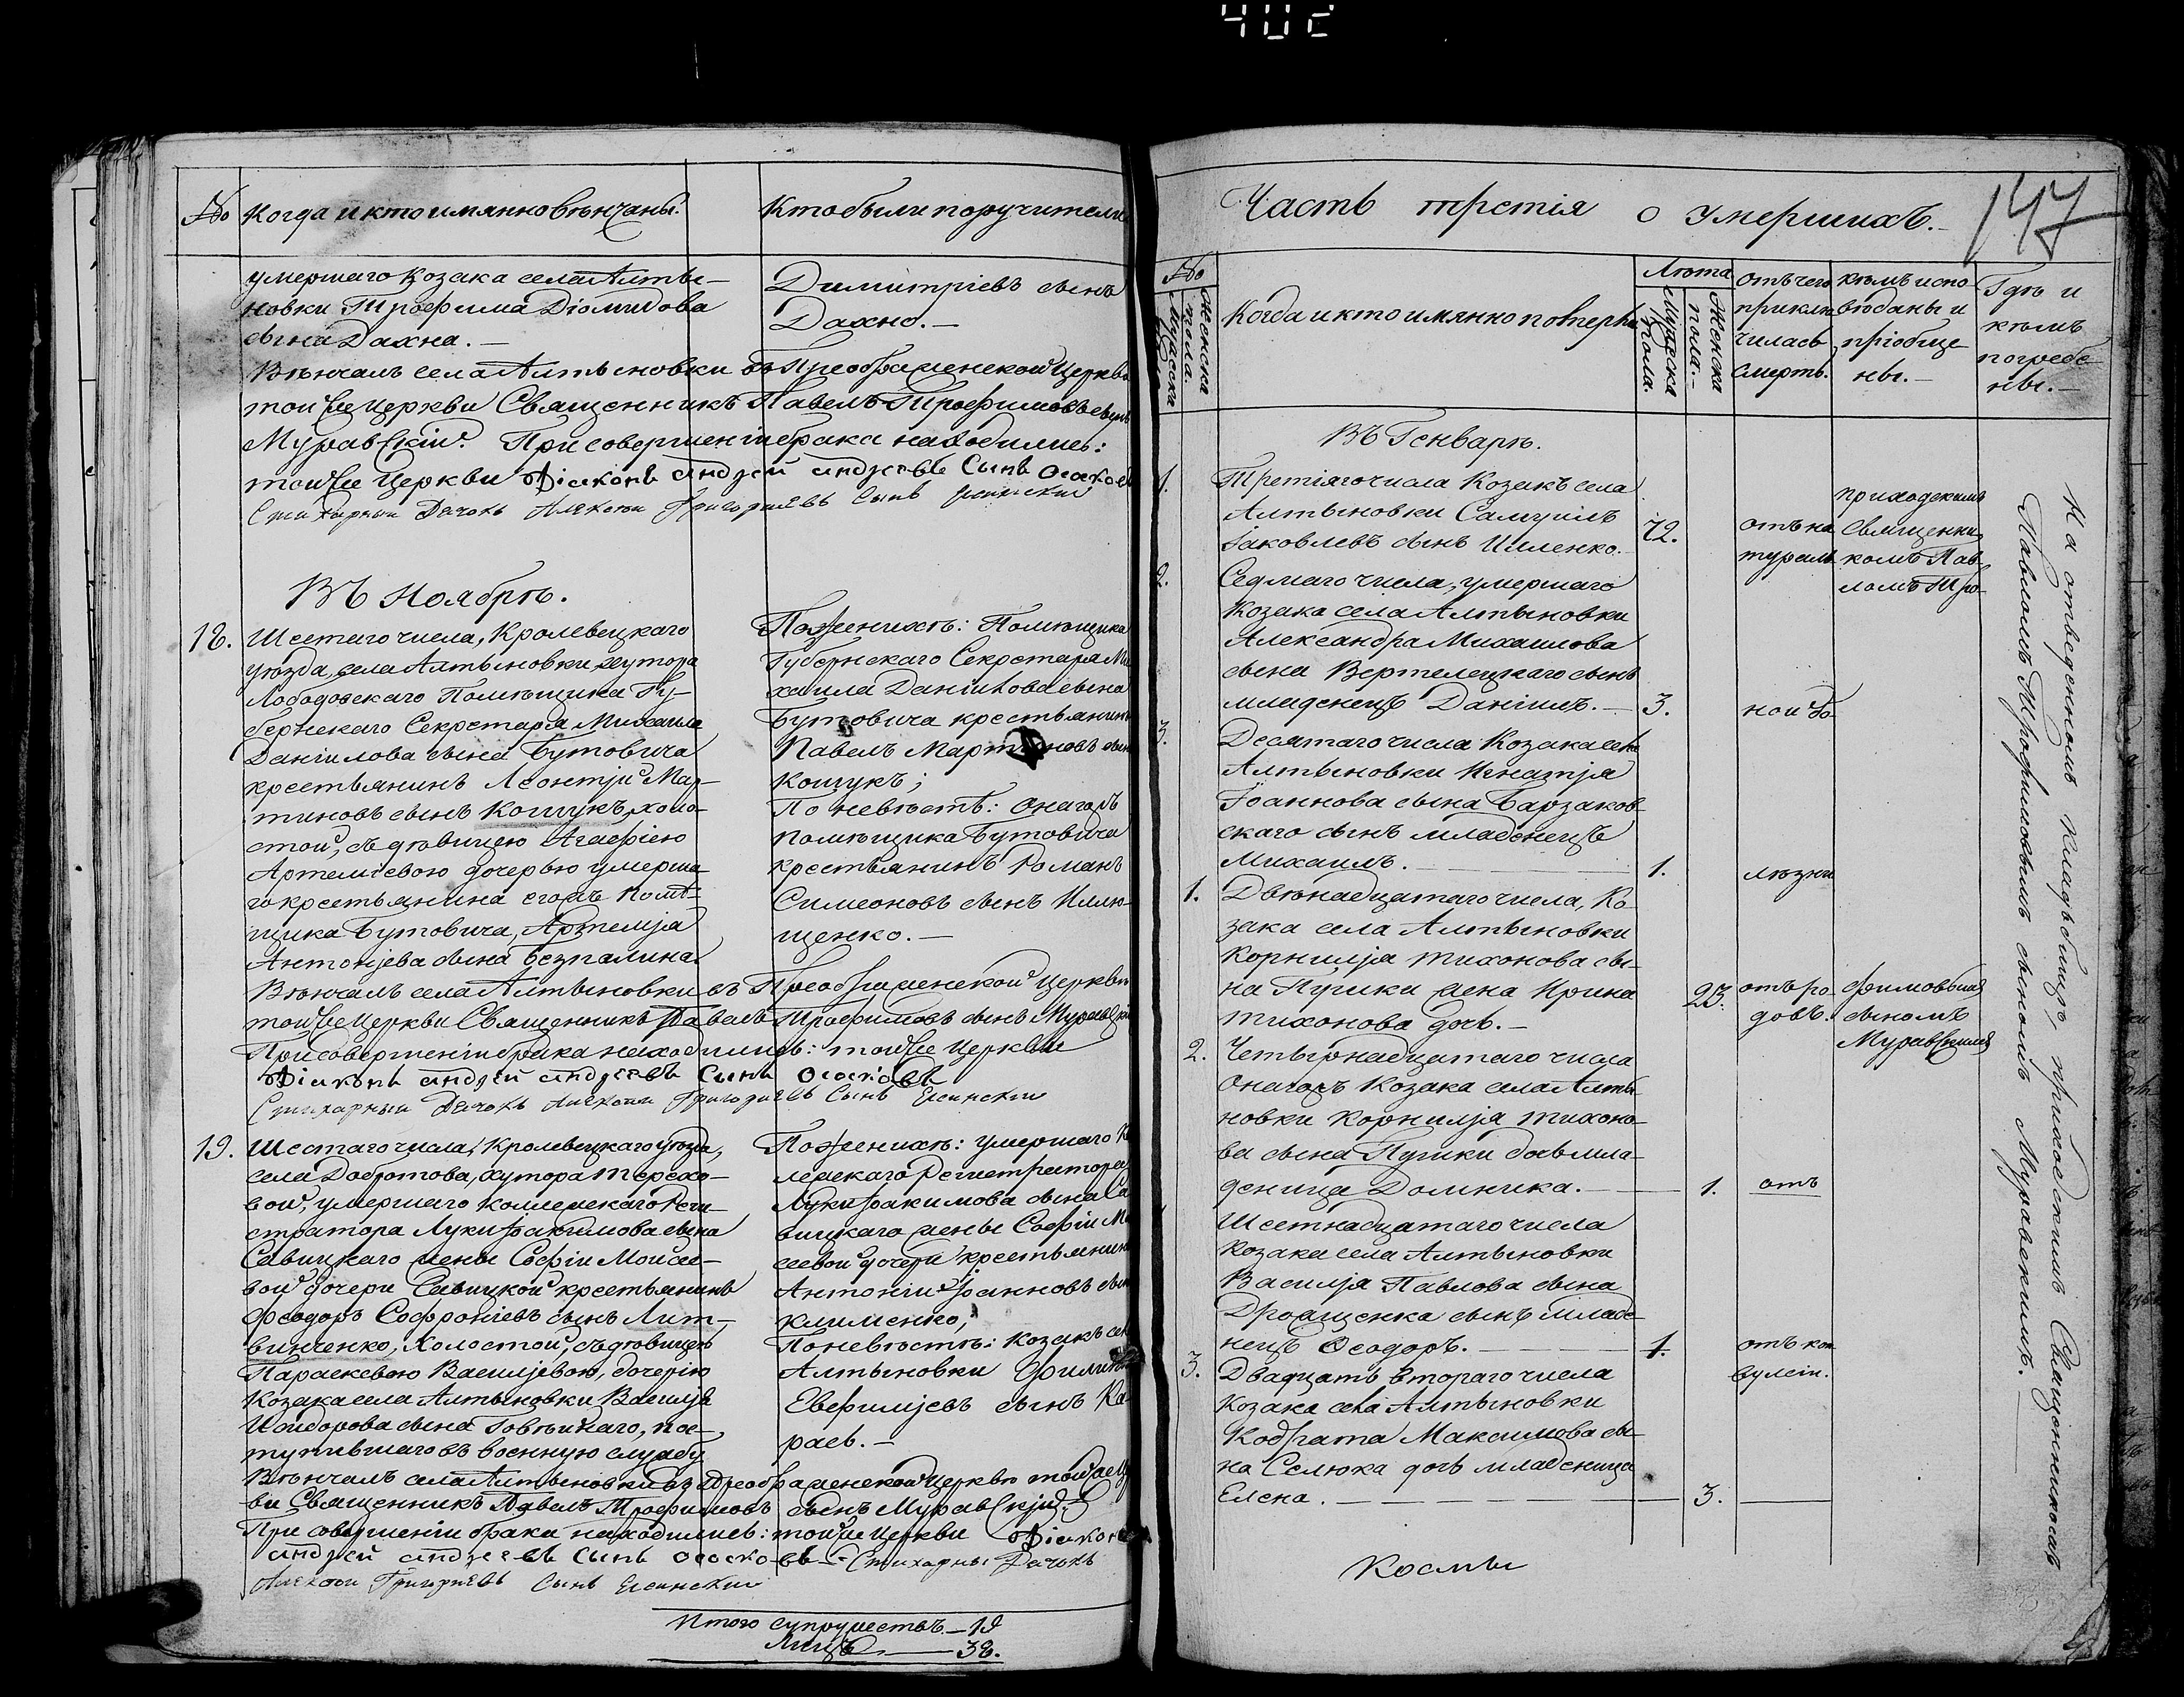 № Когда и кто имянно вѣнчаны. Кто были поручители
умершаго Козака села Алты-
новки Трофима Діомидова
сына Дахна. —
Димитріевъ сынъ
Дахно. —
Вѣнчалъ села Алтыновки въ Преображенской Церкви
той же Церкви Священникъ Павелъ Трофимовъ сынъ
Муравскій. При совершеніи брака находились:
той же Церкви Діаконъ Андрей Андреевъ Сынъ
Стихарный Дячокъ Алексѣй Григоріевъ Сынъ
Въ Ноябрѣ.
18. Шестаго числа, Кролевецкаго
уѣзда, села Алтыновки хутора
Лободовскаго Помѣщика Гу-
бернскаго Секретаря Михаила
Даніилова сына Бутовича
крестьянинъ Леонтій Мар-
тиновъ сынъ Кошукъ, холо-
стой, съ дѣвицею Агафіею
Артеміевою дочерью умерша-
го крестьянина егожъ Помѣ-
щика Бутовича, Артемія
Антоніева сына Безпалина.
По женихѣ: Помѣщика
Губернскаго Секретаря Ми
хаила Даніилова сына
Бутовича крестьянинъ
Павелъ Мартиновъ сынъ
Кошукъ;
По невѣстѣ: онагожъ
помѣщика Бутовича
крестьянинъ Романъ
Симеоновъ сынъ Иллю-
щенко. —
Вѣнчалъ села Алтыновки въ Преображенской Церкви
той же Церкви Священникъ Павелъ Трофимовъ сынъ Муравскій
При совершеніи брака находились: той же Церкви
Діаконъ Андрей Андреевъ Сынъ
Стихарный Дячокъ Алексѣй Григоріевъ Сынъ
19. Шестаго числа, Кролевецкаго уѣзда,
села Добротова, хутора Терехо-
вой, умершаго Коллежскаго Реги-
стратора Луки Іоакимова сына
Савицкаго жены Софіи Моисе-
вой дочери Савицкой крестьянинъ
Феодоръ Софроніевъ сынъ Лит-
винченко, Холостой, съ дѣвицею
Параскевою Василіевою, дочерію
Козака села Алтыновки Василія
Исидорова сына Говѣйкаго, пос-
тупившаго въ военную службу
По женихѣ: умершаго Ко
лежскаго Регистратора
Луки Іоакимова сына Са
вицкаго жены Софіи Мо
сеевой дочери крестьянинъ
Антоній Іоанновъ сынъ
Клименко;
По невѣстѣ: Козакъ села
Алтыновки
Евфиміевъ сынъ Ка
расъ. —
Вѣнчалъ села Алтыновки въ Преображенской Церкви той же Церк
ви Священникъ Павелъ Трофимовъ сынъ Муравскій.
При совершеніи брака находились: той же Церкви Діаконъ
Андрей Андреевъ Сынъ Стихарный Дячокъ
Алексѣй Григоріевъ Сынъ
Итого супружествъ — 19
Лицъ — 38.
Часть третія о умершихъ.
147
№
Мужеска числа. Женска
Когда и кто имянно померъ
Лѣта
Мужеска пола. Женска пола. —
отъ чего
приклю
чилась
смерть.
кѣмъ испо
вѣданы и
пріобще
ны. —
Гдѣ и
кѣмъ
погребе
ны. —
Въ Генварѣ.
1. Третіяго числа Козакъ села
Алтыновки Самуилъ
Іаковлевъ сынъ Иленко. 72.
отъ на
турал
приходскимъ
Священни
комъ Пав-
ломъ Тро-
2. Седмаго числа, умершаго
Козака села Алтыновки
Александра Михаилова
сына Вертелецкаго сынъ
младенецъ Даніилъ. — 3. ной бо-
3. Десятаго числа Козака села
Алтыновки Игнатія
Іоаннова сына Барзаков
скаго сынъ младенецъ
Михаилъ. — 1. лѣзни
1. Двѣнадцатаго числа, Ко-
зака села Алтыновки
Корнилія Тихонова сы-
на Пушки жена Ирина
Тихонова дочь. — 23.
отъ ро
довъ.
фимовымъ
сыномъ
Муравскимъ
2. Четырнадцатаго числа
Онагожъ Козака села Алты-
новки Корнилія Тихоно-
ва сына Пушки дочь мла-
деница Домника. — 1. отъ
Шестнадцатаго числа
Козака села Алтыновки
Василія Павлова сына
сынъ младе-
нецъ Феодоръ. — 1.
отъ кон
вулсіи.
3. Двадцать втораго числа
Козака села Алтыновки
Кодрата Максимова сы-
на Селюка дочь младеница
Елена. — 3. —
На отведенномъ кладбищѣ, приходскимъ Священникомъ
Павломъ Трофимовымъ сыномъ Муравскимъ.
Космы